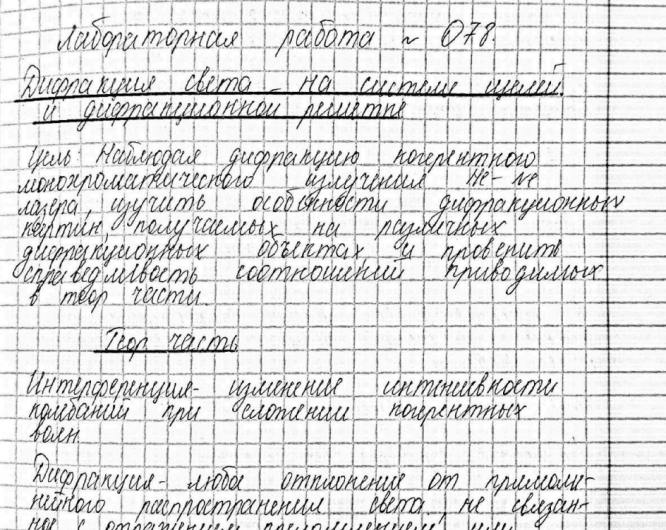 Лабораторная работа ~ 078.
Дифракция света на системе щелей
и дифракционной решетке
Цель: Наблюдая дифракцию когерентного
монохроматического излучения He-Ne
лазера, изучить особенности дифракционных
картин получаемых на различных
дифракционных объектах, и проверить
справедливость соотношений приводимых
в теор части.
Теор часть
Интерференция- изменение интенсивности
колебаний при сложении когерентных
волн
Дифракция- любое отклонение от прямоли-
нейного распространения света не связан-
ное с отражением, преломлением, или